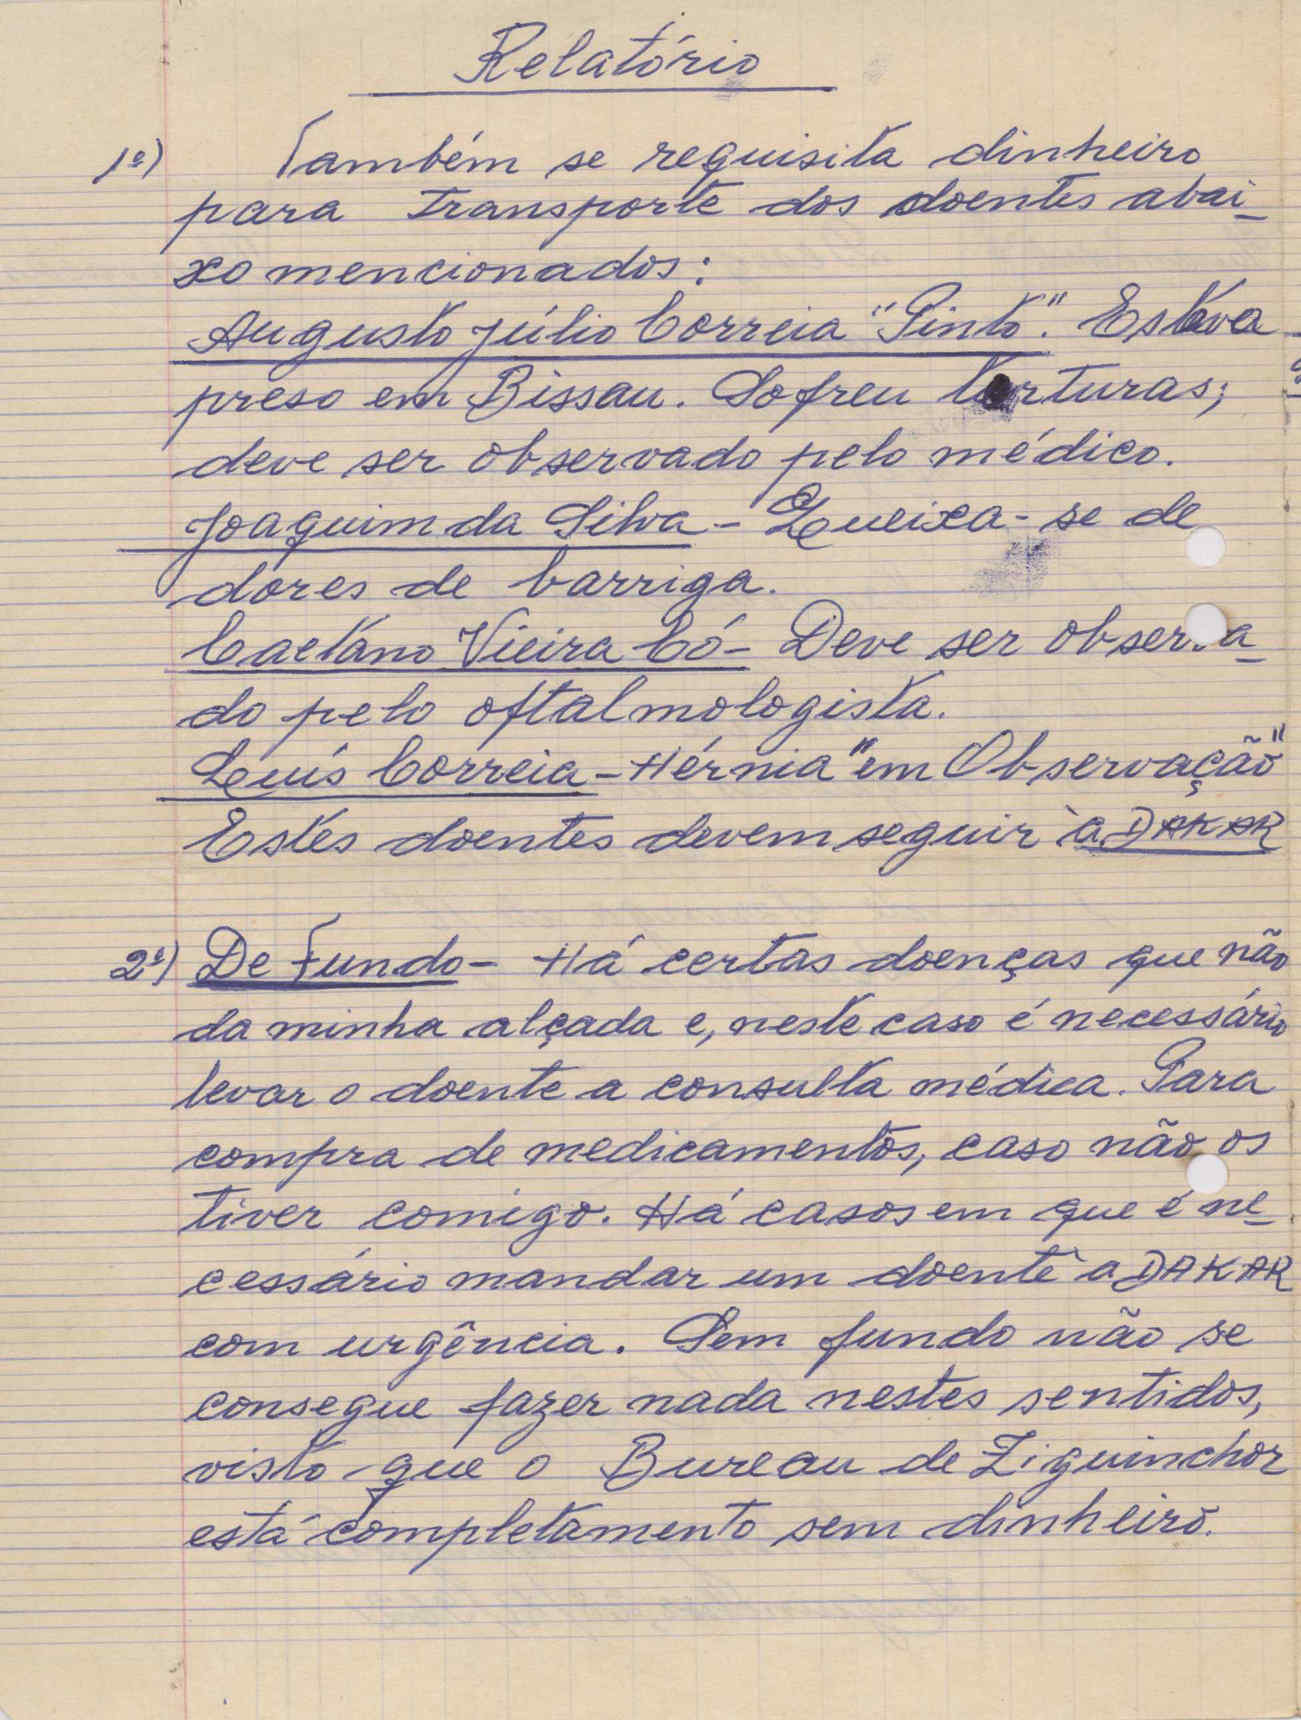 Relatório
1º) Também se requisita dinheiro
para transporte dos doentes abai-
xo mencionados:
Augusto Júlio Correia "Pinto". Estava
preso em Bissau. Sofreu torturas;
deve ser observado pelo médico.
Joaquim da Silva - Queixa-se de
dores de barriga.
Caetano Vieira Có - Deve ser observa-
do pelo oftalmologista.
Luís Correia - Hérnia "em Observação"
Estes doentes devem seguir à DAKAR
2º) De Fundo - Há certas doenças que não
da minha alçada e, neste caso é necessário
levar o doente a consulta médica. Para
compra de medicamentos, caso não os
tiver comigo. Há casos em que é ne-
cessário mandar um doente à DAKAR
com urgência. Sem fundo não se
consegue fazer nada nestes sentidos,
visto que o Bureau de Ziguinchor
está completamento sem dinheiro.